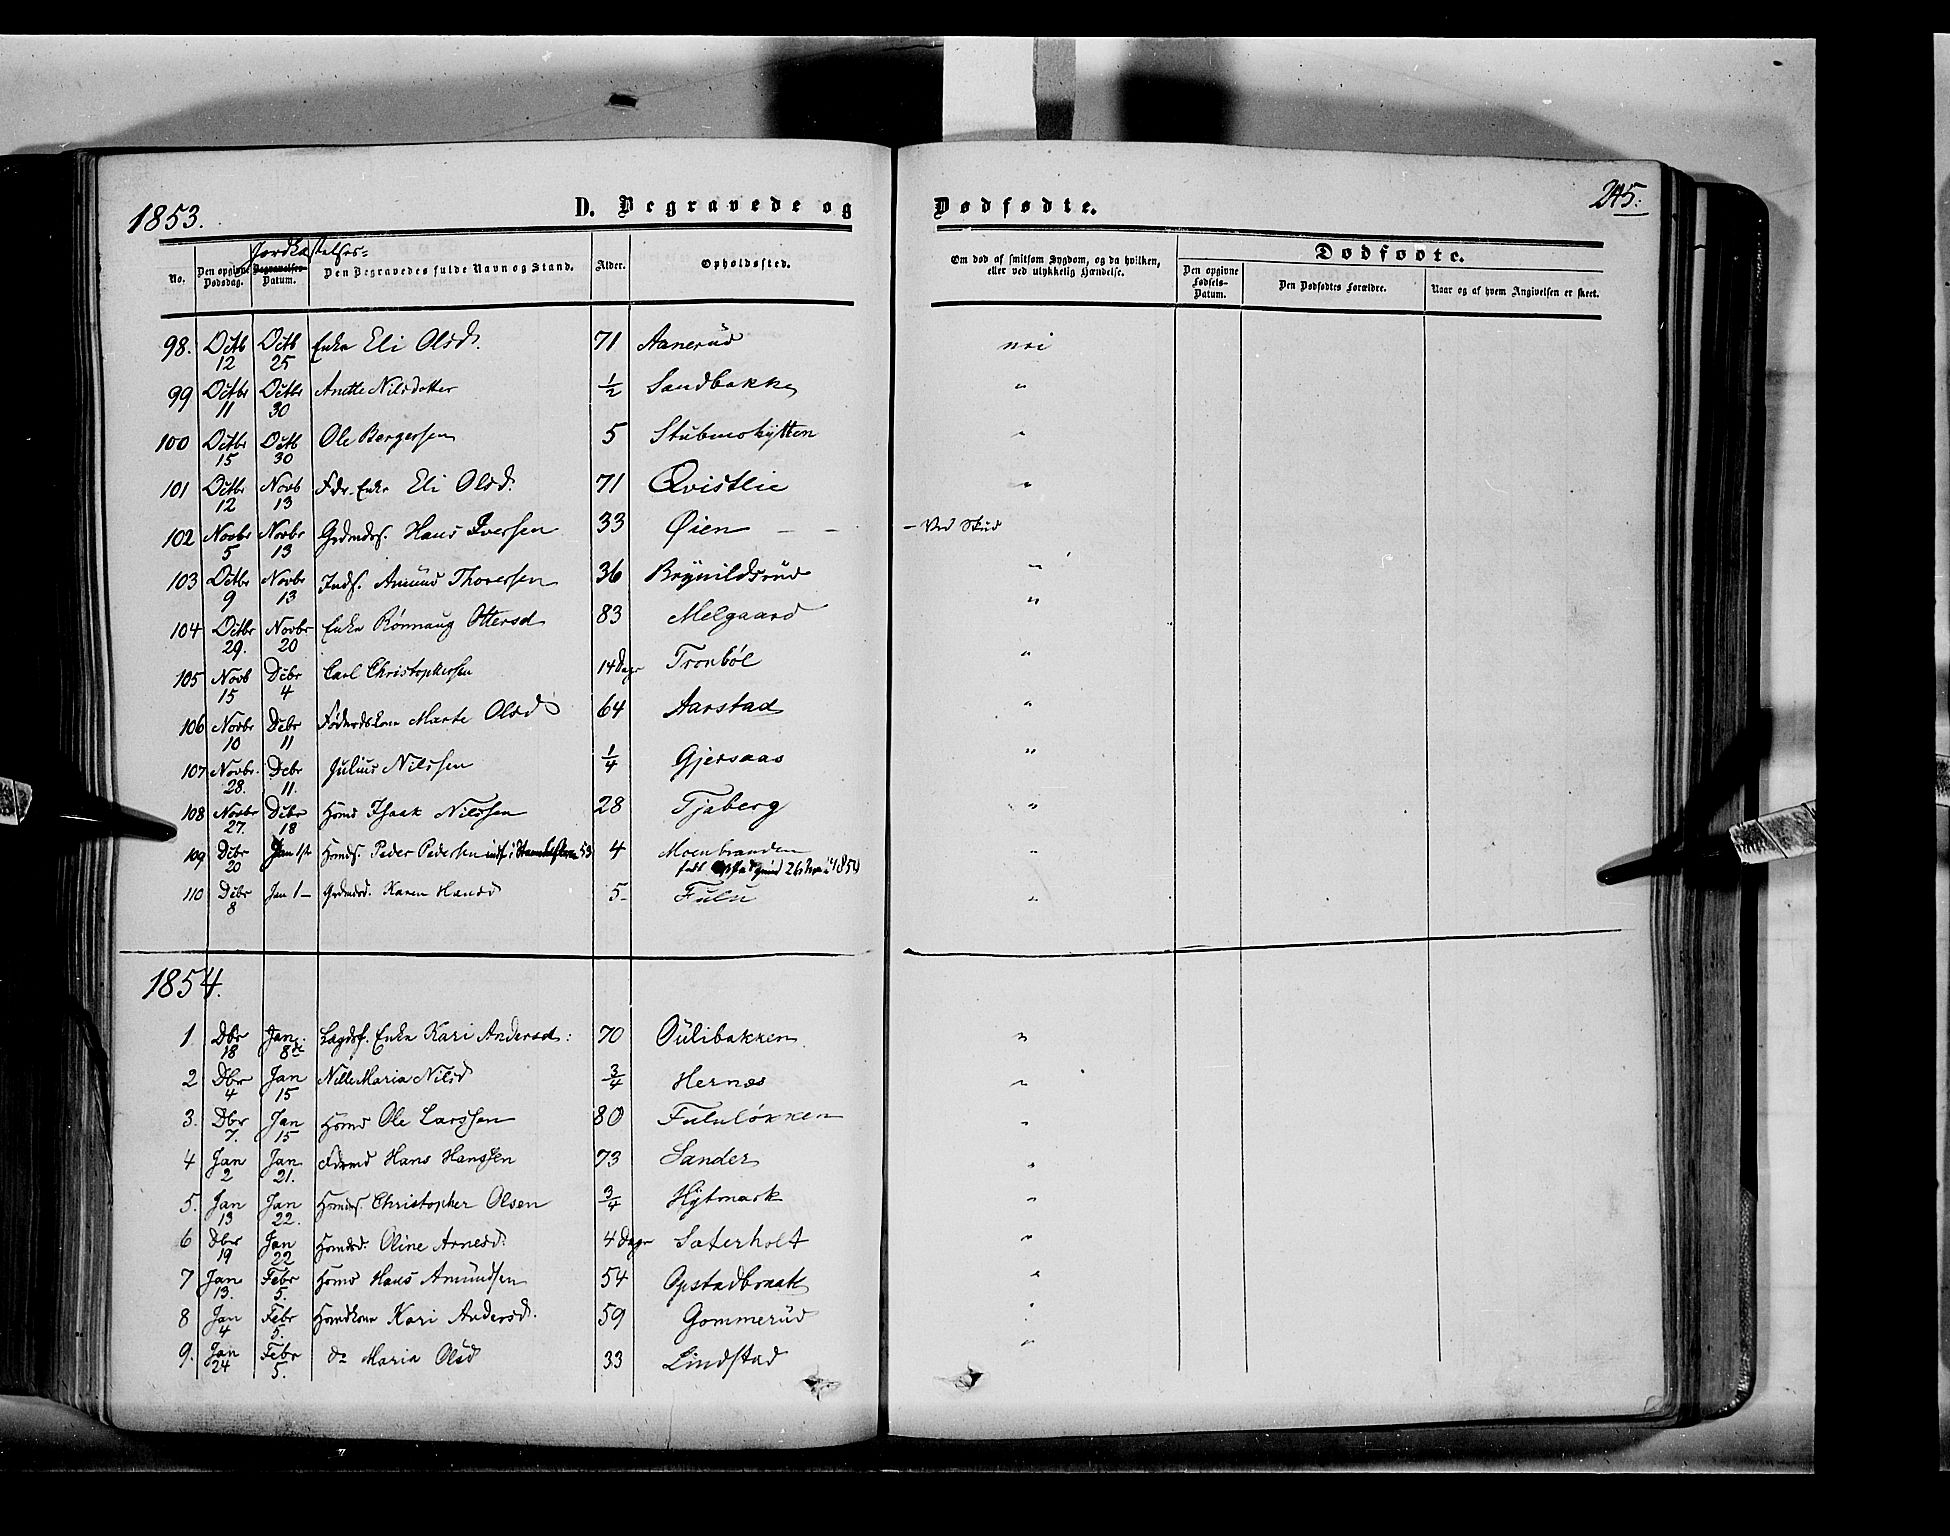 1853.
D. Begravede og Dødfødte.
245.
Jordkastelses-
No. Den opgivne Dødsdag. Begravelses-Datum. Den Begravedes fulde Navn og Stand. Alder. Opholdssted. Om død af smitsom Sygdom, og da hvilken, eller ved ulykkelig Hændelse. Dødfødte. Den opgivne Fødsels-Datum. Den Dødfødtes Forældre. Naar og af hvem Angivelsen er skeet.
98. Octb 12 Octb 25 Enke Eli Olsd. 71 Aanerud nei
99 Octbr 11 Octbr 30 Anette Nilsdotter 1/2 Sandbakke "
100 Octbr 15 Octb 30 Ole Bergersen 5 Stubmohytten "
101 Octbr 12 Novb 13 Fdr. Enke Eli Olsd. 71 Qvistlie "
102 Novbr 5 Novbr 13 Grdmds. Hans Iversen 33 Øien - - - Ved Skud
103 Octbr 9 Novbr 13 Inds. Amund Thoresen 36 Brynildsrud "
104 Octbr 29. Novbr 20 Enke Rønnaug Ottersd 83 Melgaard "
105 Novb 15 Dcbr 4 Carl Christophersen 14 Dage Tronbøl "
106 Novbr 10 Dcbr 11 Føderdskone Marte Olsd 64 Aarstad "
107 Novbr. 28. Dcbr 11. Julius Nilssen 1/4 Gjersaas "
108 Novbr 27. Dcbr 18 Hsmd Isaak Nilssen 28 Tjaberg "
109 Dcbr 20 Jan 1st Hsmds. Peder Pedersen indf. i 53 4 Moenbranden "
født 1850
110 Dcbr 8 Jan 1 - Grdmdsd. Karen Hansd 5- Fulu "
1854.
1 Dbr 18 Jan. 8de Lægdsf. Enke Kari Andersd: 70 Oulibakken "
2 Dbr 4 Jan 15 Nille Maria Nilsd 3/4 Hernes "
3. Dbr 7. Jan 15 Hsmd Ole Larssen 80 Fululøkken "
4 Jan 2 Jan 21. Fdrmd Hans Hanssen 73 Sander "
5. Jan 13 Jan 22. Hsmds. Christopher Olsen 3/4 Hytmark "
6 Dbr 19 Jan 22 Hsmdsd. Oline Arnesd. 4 Dage Sæterholt "
7 Jan 13. Febr 5. Hsmd Hans Amundsen 54 Opstadbraat "
8 Jan 4 Febr 5. Hsmdkone Kari Andersd. 59 Gommerud "
9. Jan 24 Febr 5. do Maria Olsd 33 Lindstad "